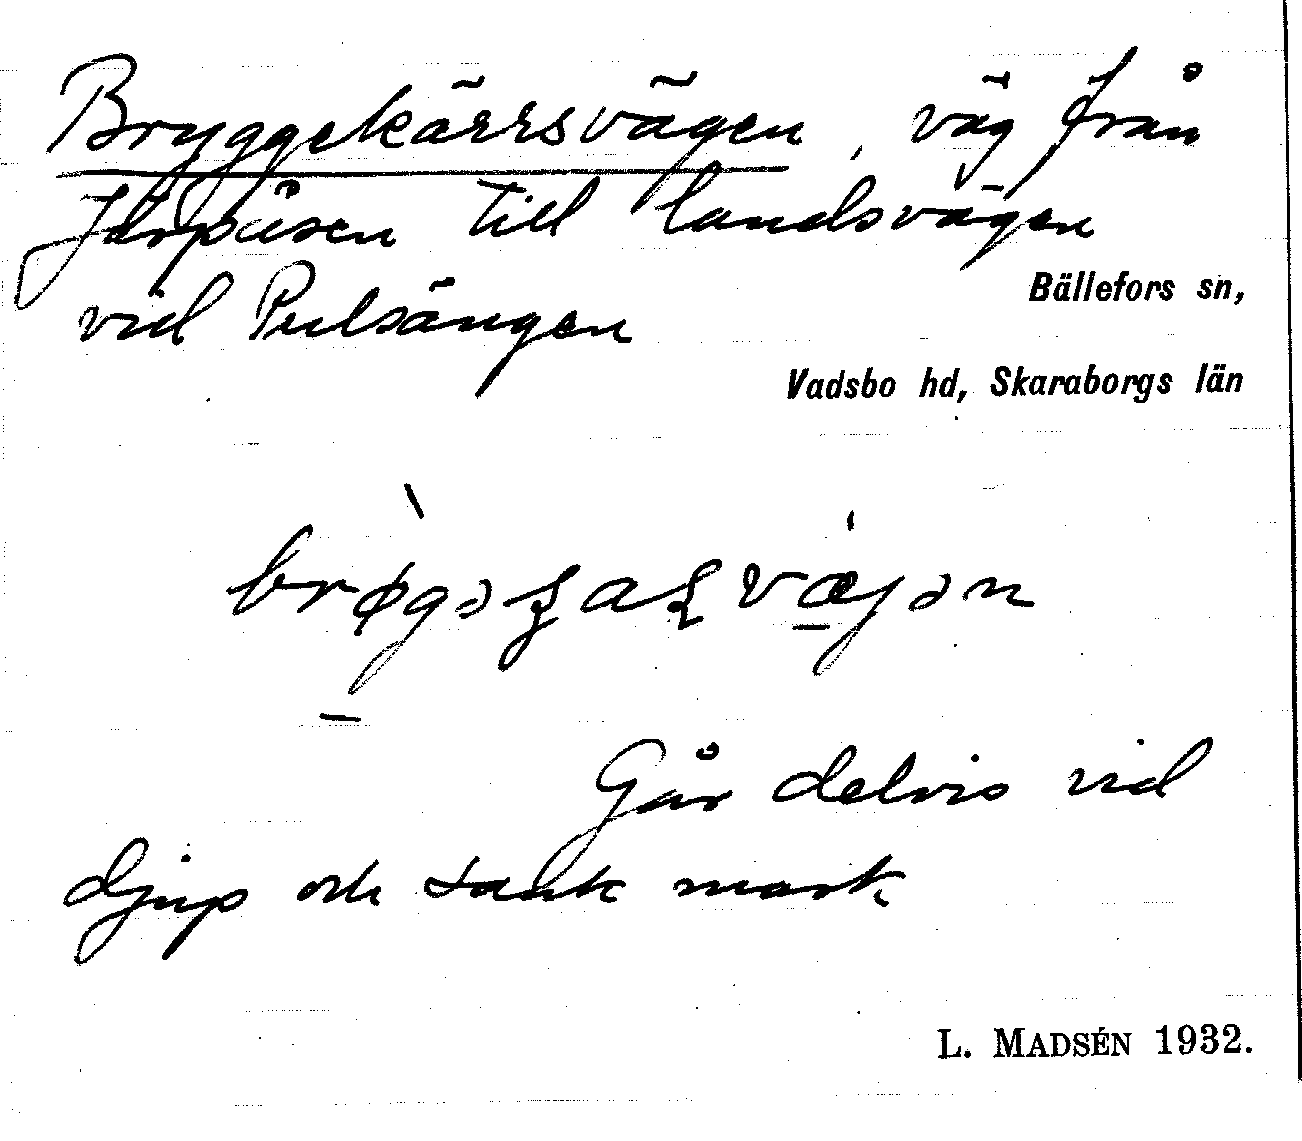 Bryggekärrsvägen, väg från
Järpåsen till landsvägen
vid Pulsängen
Bällefors sn,
Vadsbo hd, Skaraborgs län
Går delvis vid
djup och sank mark
L. MADSÉN 1932.